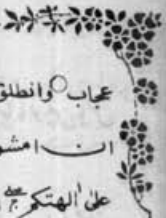 عجاب ○ وانطلق
ان امشو
على الهتكم ۖ